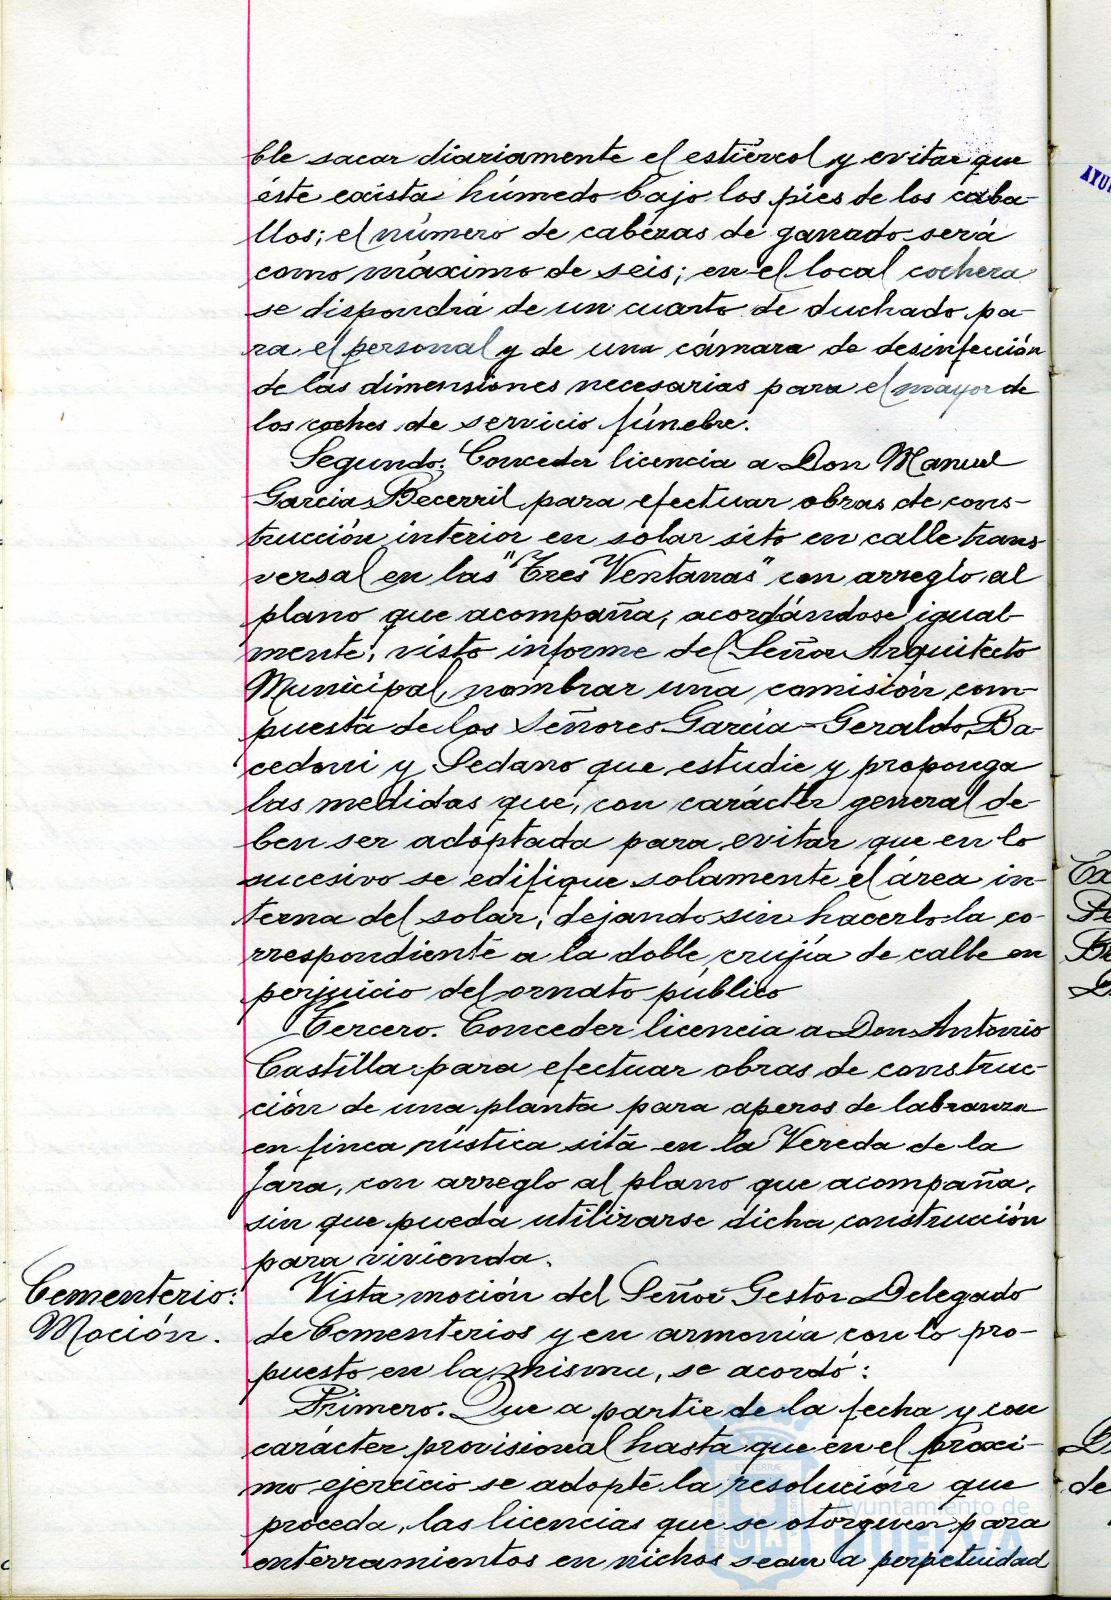 ble sacar diariamente el estiércol y evitar que
éste exista húmedo bajo los pies de los caba-
llos; el número de cabezas de ganado será
como máximo de seis; en el local cochera
se dispondrá de un cuarto de duchado pa-
ra el personal y de una cámara de desinfección
de las dimensiones necesarias para el mayor de
los coches de servicio fúnebre.
Segundo. Conceder licencia a Don Manuel
Garcia Becerril para efectuar obras de cons-
trucción interior en solar sito en calle trans
versal en las "Tres Ventanas" con arreglo al
plano que acompaña, acordándose igual-
mente, visto informe del Señor Arquitecto
Municipal, nombrar una comisión com-
puesta de los Señores Garcia-Geraldo, Ba-
cedoni y Sedano que estudie y proponga
las medidas que, con carácter general de-
ben ser adoptada para evitar que en lo
sucesivo se edifique solamente el área in-
terna del solar, dejando sin hacerlo la co-
rrespondiente a la doble crujía de calle en
perjuicio del ornato publico
Tercero. Conceder licencia a Don Antonio
Castilla para efectuar obras de construc-
ción de una planta para aperos de labranza
en finca rústica sita en la Vereda de la
Jara, con arreglo al plano que acompaña,
sin que pueda utilizarse dicha construcción
para vivienda.
Cementerio:
Moción.
Vista moción del Señor Gestor Delegado
de Cementerios y en armonía con lo pro-
puesto en la misma, se acordó:
Primero. Que a partir de la fecha y con
carácter provisional hasta que en el próxi-
mo ejercicio se adopte la resolución que
proceda, las licencias que se otorguen para
enterramientos en nichos sean a perpetuidad
Ayuntamiento de
HUELVA